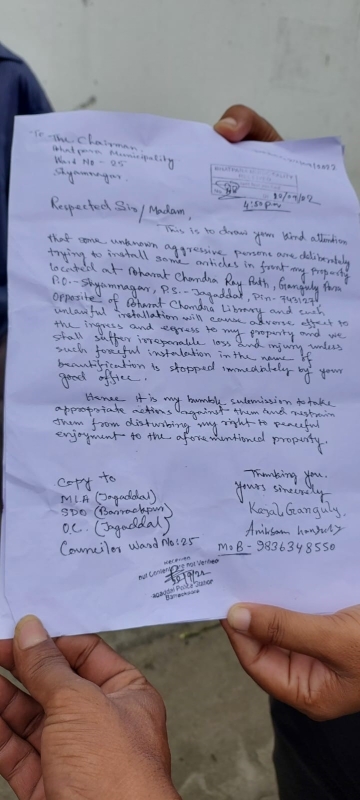 To The Chairman,
Bhatpara Municipality
Ward No - 25
Shyamnagar.
BHATPARA MUNICIPALITY
4:50 pm
Respected Sir/Madam,
This is to draw your kind attention
that some unknown aggressive persons are deliberately
trying to install some articles in front my property
located at Bharat Chandra Ray Path, Ganguly Para
P.O.- Shyamnagar, P.S.- Jagaddal, Pin- 743127
opposite of Bharat Chandra Library and such
unlawful installation will cause adverse effect to
the ingress and egress to my property and we
shall suffer irreparable loss and injury unless
such forceful instalation in the name of
beautification is stopped immediately by your
good office.
Hence it is my humble submission to take
appropriate actions against them and restrain
them from disturbing my right to peaceful
enjoyment to the aforementioned property.
Thanking you.
yours sincerely
Kajal Ganguly.
Anirban
MOB- 9836348550
Copy to
MLA (Jagaddal)
SDO (Barrackpur)
O.C. (Jagaddal)
Councilor Ward No: 25
Received
but Contents are not Verified
Jagaddal Police Station
Barrackpore